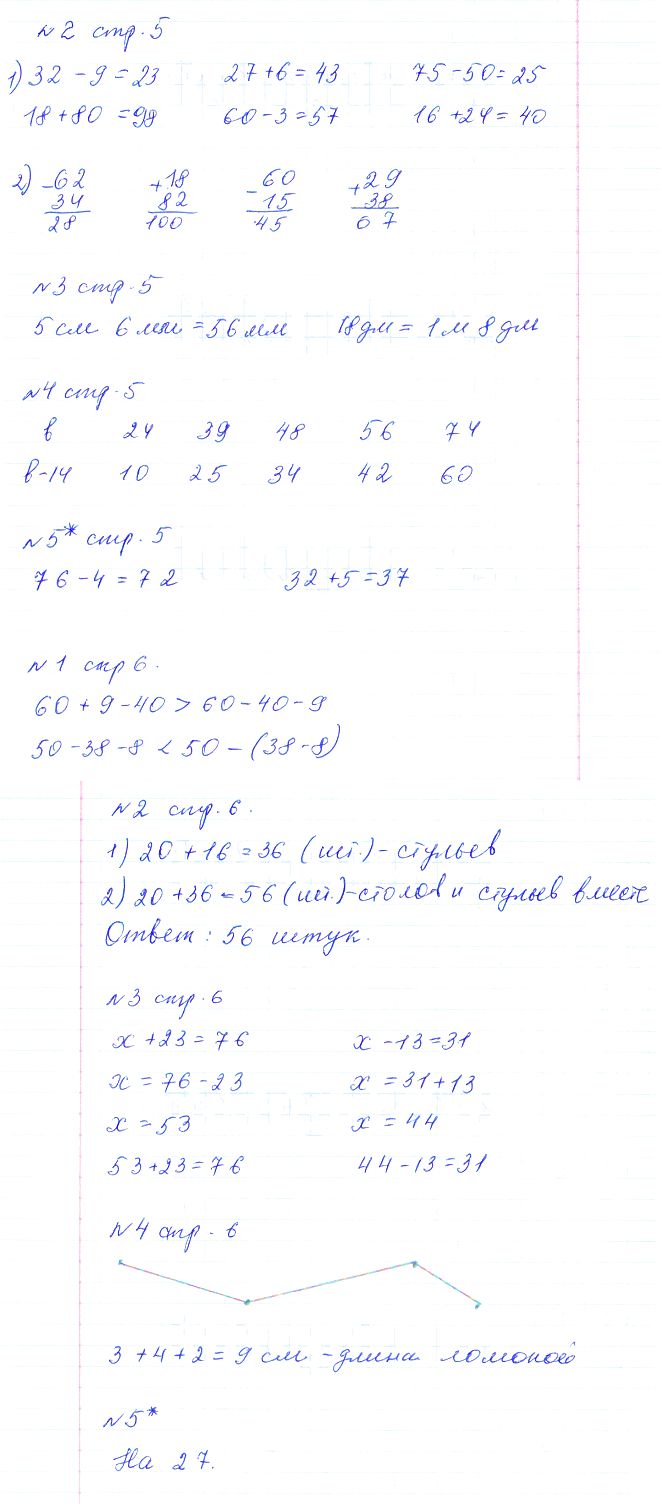 №2 стр. 5
1) 32 - 9 = 23 27 + 6 = 43 75 - 50 = 25
18 + 80 = 98 60 - 3 = 57 16 + 24 = 40
2) - 62 + 18 - 60 + 29
34 82 15 38
28 100 45 67
№3 стр. 5
5 см 6 мм = 56 мм 18 дм = 1 м 8 дм
№4 стр. 5
в 24 39 48 56 74
в-14 10 25 34 42 60
№5* стр. 5
76 - 4 = 72 32 + 5 = 37
№1 стр 6.
60 + 9 - 40 > 60 - 40 - 9
50 - 38 - 8 < 50 - (38 - 8)
№2 стр. 6.
1) 20 + 16 = 36 (шт.) - стульев
2) 20 + 36 = 56 (шт.) - столов и стульев вместе
Ответ: 56 штук.
№3 стр. 6
х + 23 = 76 х - 13 = 31
х = 76 - 23 х = 31 + 13
х = 53 х = 44
53 + 23 = 76 44 - 13 = 31
№4 стр. 6
3 + 4 + 2 = 9 см - длина ломоной
№5*
На 27.